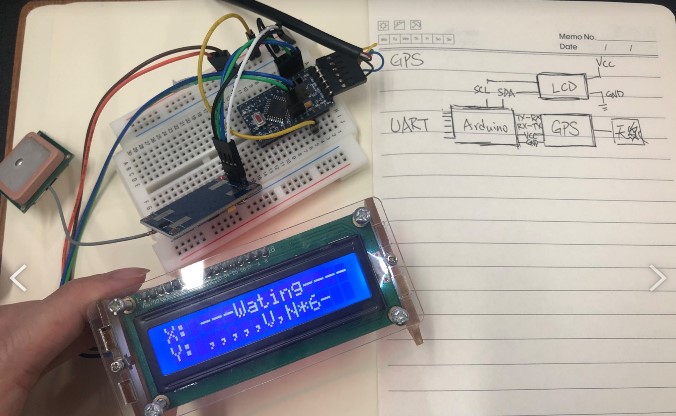 Memo No.
Date / /
GPS
VCC
SCL SDA LCD GND
UART Arduino TX-RX GPS 天线
RX-TX
VCC
GND
X: ---Wating----
Y: ,,,,,V,N*6-